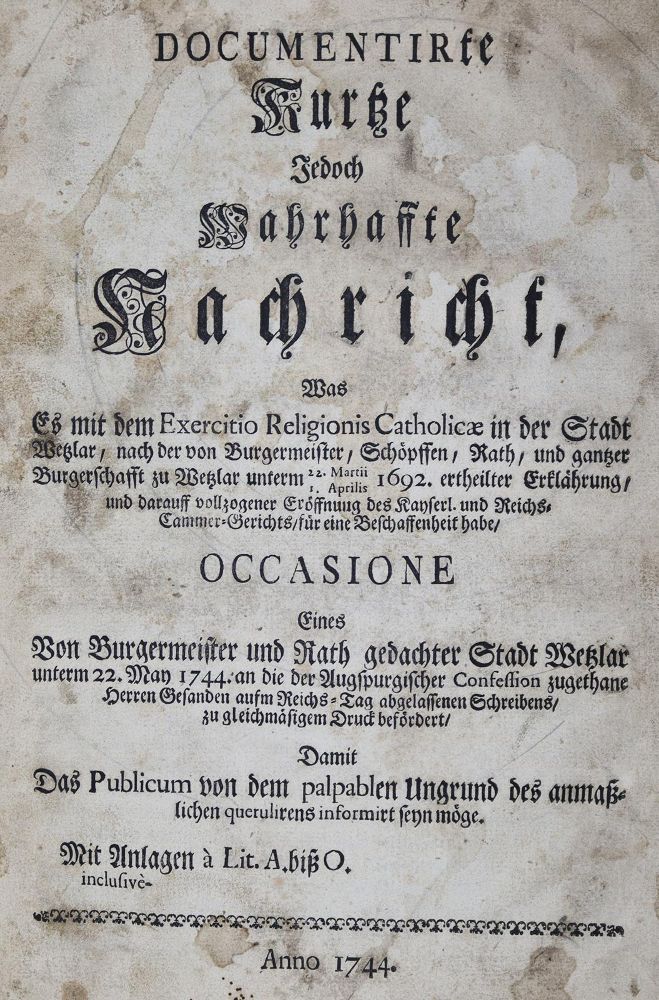 DOCUMENTIRte
Kurtze
Jedoch
Wahrhaffte
Nachricht,
Was
Es mit dem Exercitio Religionis Catholicæ in der Stadt
Wetzlar/ nach der von Burgermeister/ Schöpffen/ Rath/ und gantzer
Burgerschafft zu Wetzlar unterm 22. Martii / 1. Aprilis 1692. ertheilter Erklährung/
und darauff vollzogener Eröffnung des Kayserl. und Reichs-
Cammer-Gerichts/ für eine Beschaffenheit habe/
OCCASIONE
Eines
Von Burgermeister und Rath gedachter Stadt Wetzlar
unterm 22. May 1744. an die der Augspurgischer Confession zugethane
Herren Gesanden aufm Reichs-Tag abgelassenen Schreibens/
zu gleichmäsigem Druck befördert/
Damit
Das Publicum von dem palpablen Ungrund des anmaß-
lichen querulirens informirt seyn möge.
Mit Anlagen à Lit. A. biß O.
inclusivè-
Anno 1744.